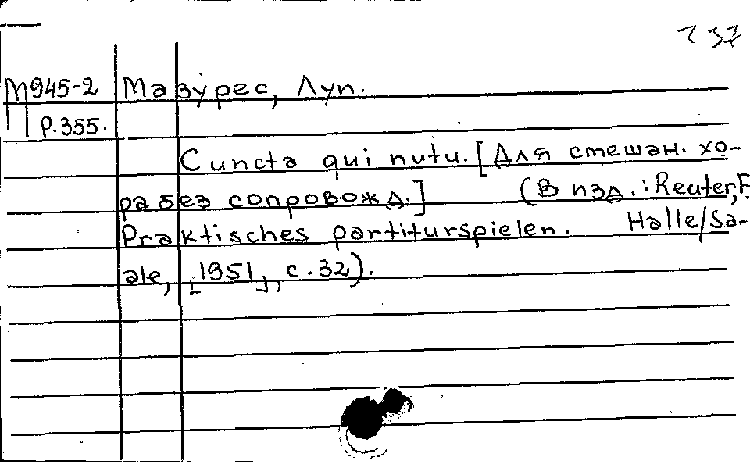 737
М945-2 Мазурес, Луп.
Р.355.
Cuncta qui nutu. [Для смешан. хо-
ра без сопровожд.] (В изд.: Reuter, F.
Praktisches partiturspielen. Halle/Sa-
ale, [1951], с. 32).